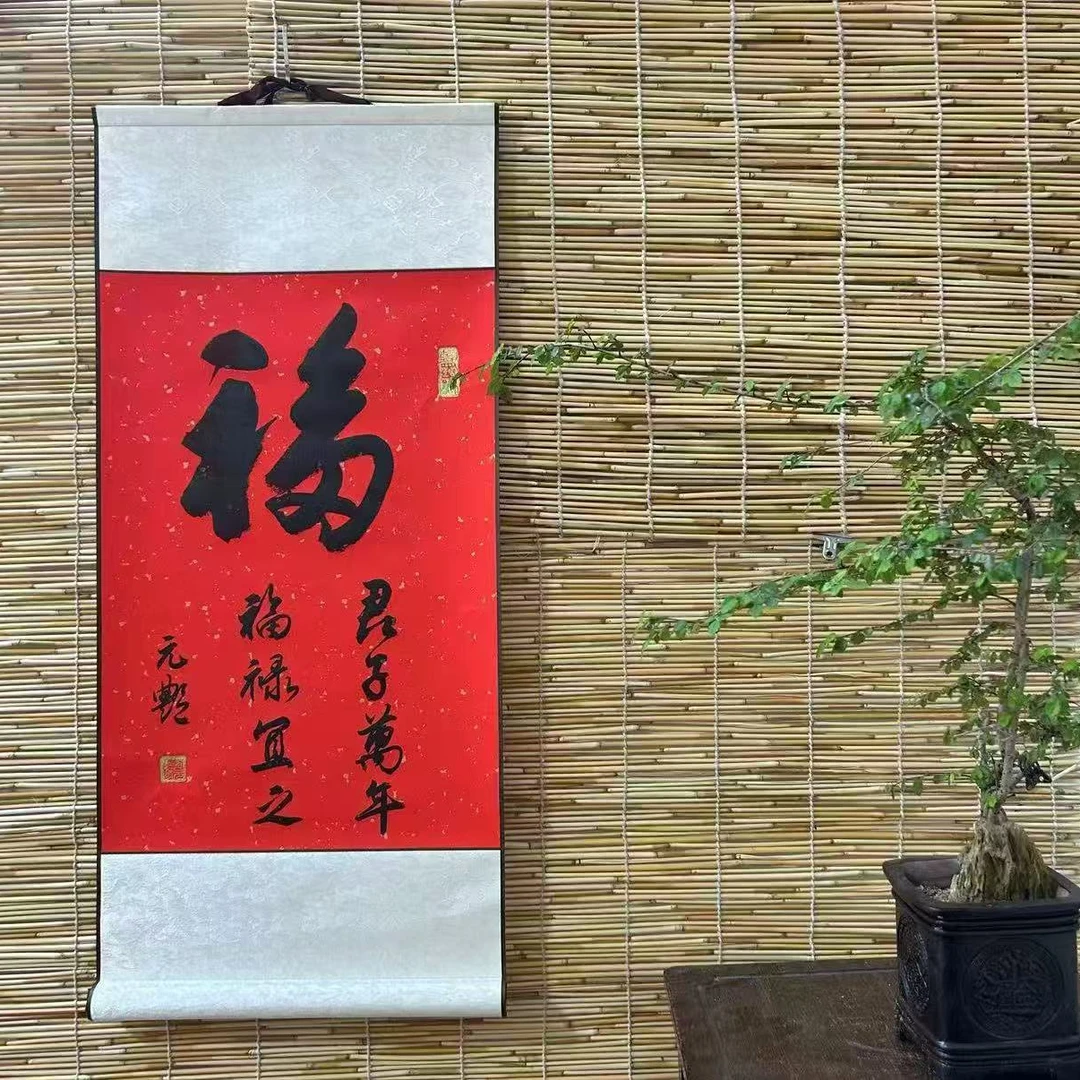 福
君子萬年
福禄宜之
元艷